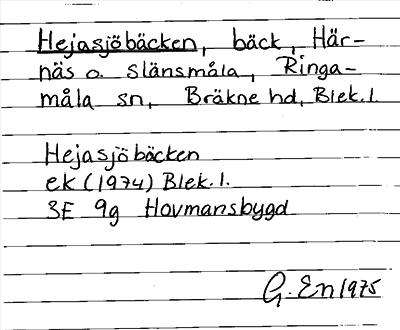 Hejasjöbäcken, bäck, Här-
näs o. Slänsmåla, Ringa-
måla sn, Bräkne hd, Blek. l.
Hejasjöbäcken
ek (1974) Blek. l.
3E 9g Hovmansbygd
G. En 1975